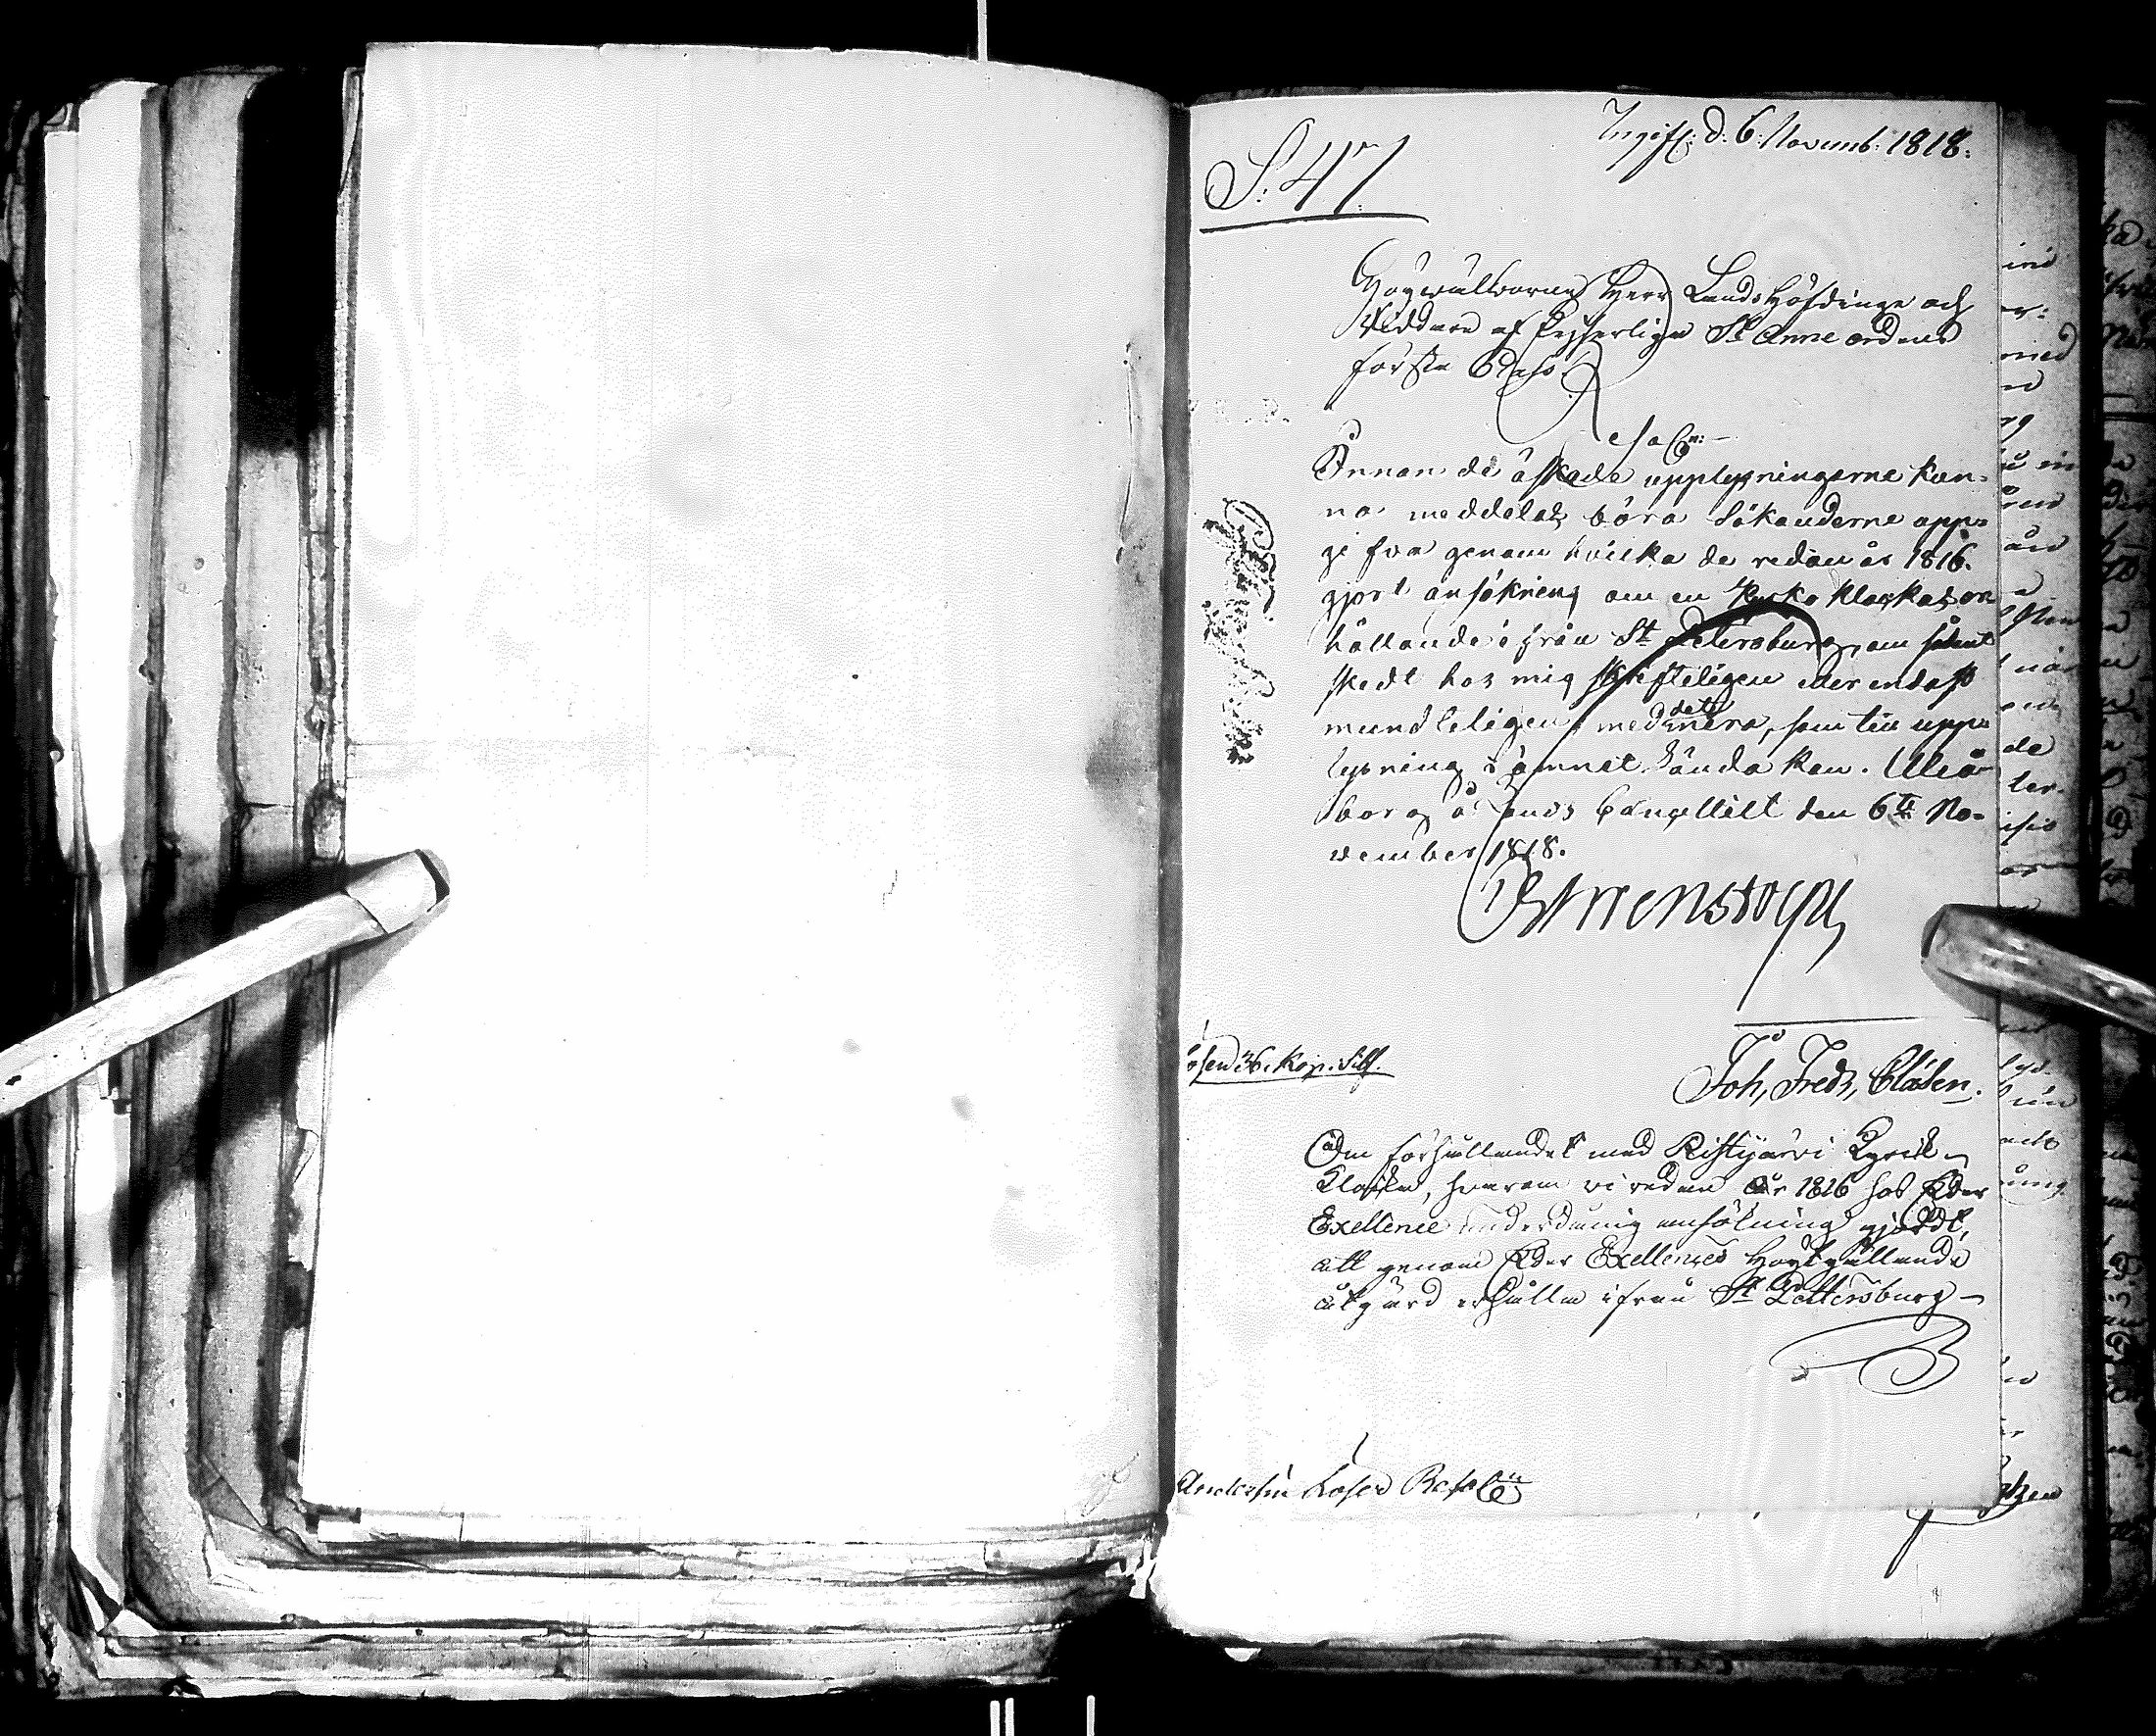 Ingifl: d: 6: Novemb: 1818:
S: 47.
Högvälborne Herr Landshöfdinge och
Riddare af Kejserliga St Anne ordens
första Class.
Resol:n: –
Innan de äskade upplysningarne kun-
na meddelas böra Sökanderne upp-
gifva genom hvilka de redan år 1816.
gjort ansökning om en Kyrko klockas er-
hållande ifrån St Petersburg, om sådant
skedt hos mig skrifteligen eller endast
mundteligen, med det mera, som till upp-
lysning i ämnet lända kan. Uleå-
borg å Lands Cancelliet den 6te No-
vember 1818.
Ehrenstolpe
Lösen 36. Kop. Silf.
Joh, Fredr, Clásen.
Om förhållandet med Ristijärvi Kyrck-
Klocka, hvarom vi redan år 1816 hos Eder
Exellence underdånig ansökning gjordt,
att genom Eder Exellences Högtgällande
åtgärd erhålla ifrån St Pettersburg –
Resol:n